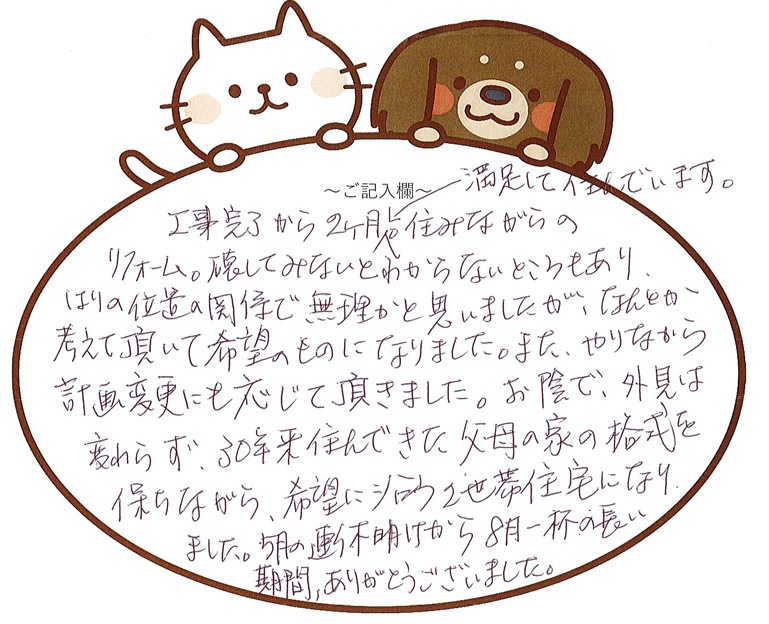 ～ご記入欄～
満足して住んでいます。
工事完了から2ヶ月。住みながらの
リフォーム。壊してみないとわからないところもあり、
はりの位置の関係で無理かと思いましたが、なんとか
考えて頂いて希望のものになりました。また、やりながら
計画変更にも応じて頂きました。お陰で、外見は
変わらず、30年来住んできた父母の家の格式を
保ちながら、希望に 2世帯住宅になり
ました。5月の連休明けから8月一杯の長い
期間、ありがとうございました。